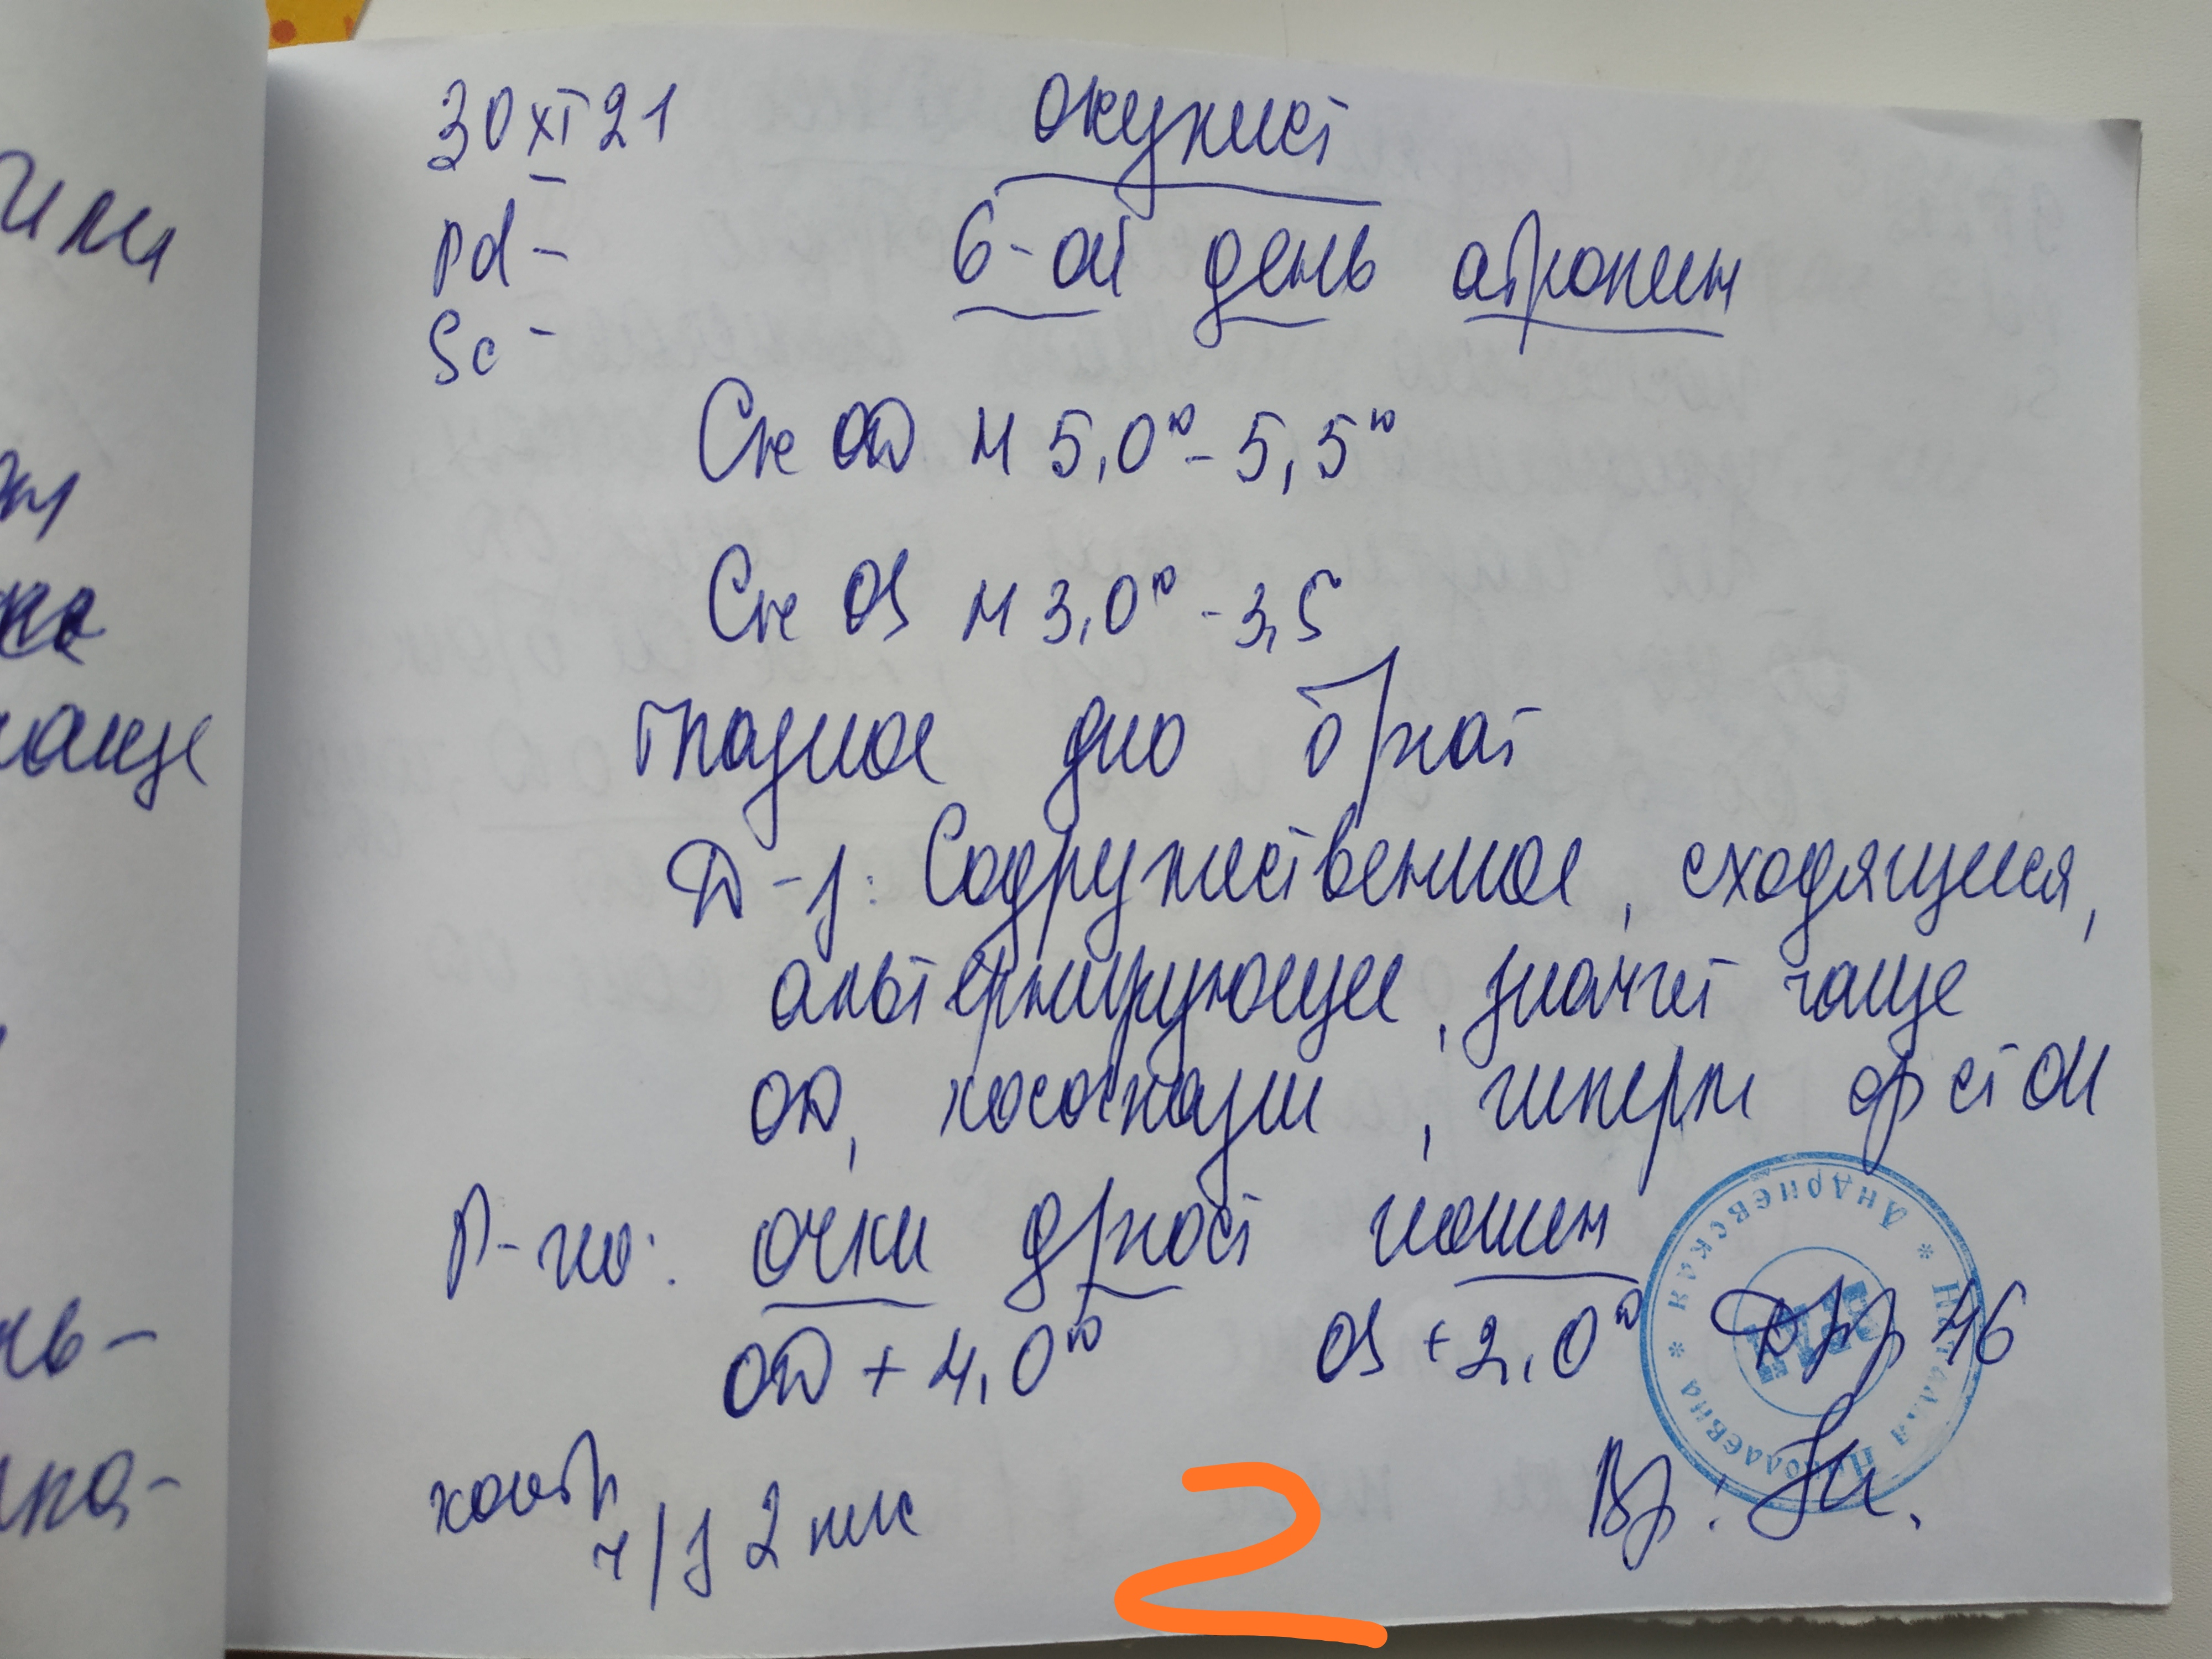 30 XI 21 окулист
Pd - 6-ой день атропин
Sc -
Ске OD M 5,0ᴰ - 5,5ᴰ
Ске OS M 3,0ᴰ - 3,5
глазное дно б/пат
D-з: Содружественное, сходящееся,
альтернирующее, значит чаще
OD, косоглазие, гиперм ср ст OU
Р-но: очки д/пост ношен
OD + 4,0ᴰ OS + 2,0ᴰ Дрр 46
контр
ч/з 2 мес Вр:
2
* Наталия Николаевна * Андриевская